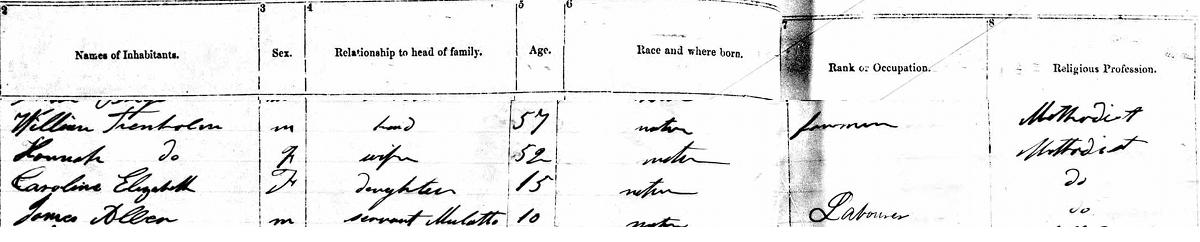 2 3 4 5 6 7 8
Names of Inhabitants. Sex. Relationship to head of family. Age. Race and where born. Rank or Occupation. Religious Profession.
William Trenholm m head 57 native farmer Methodist
Hannah do f wife 52 native Methodist
Caroline Elizabeth F daughter 15 native do
James Allen m servant Mulatto 10 native Labourer do